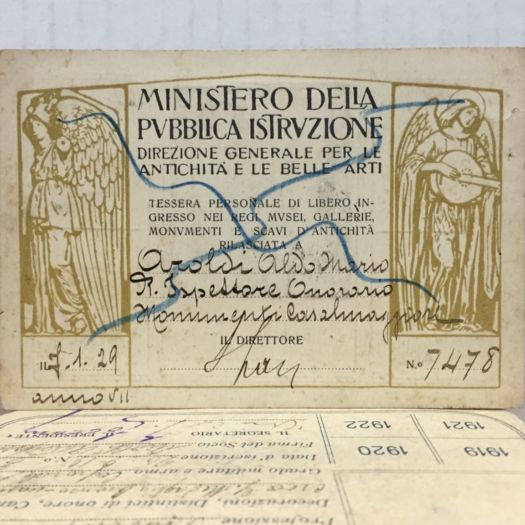 MINISTERO DELLA
PVBBLICA ISTRVZIONE
DIREZIONE GENERALE PER LE
ANTICHITÀ E LE BELLE ARTI
TESSERA PERSONALE DI LIBERO IN-
GRESSO NEI REGI MVSEI, GALLERIE,
MONVMENTI E SCAVI D'ANTICHITÀ
RILASCIATA A
Aroldi Aldo Mario
R. Ispettore Onorario
Monumenti Casalmaggiore
IL DIRETTORE
IL 1.29
N.o 7478
anno VII
IL PRESIDENTE
IL SECRETARIO
Firma del Socio
Data d'iscrizione
Grado militare e arma
Decorazioni, Distintivi di onore
1922
1921
1920
1919